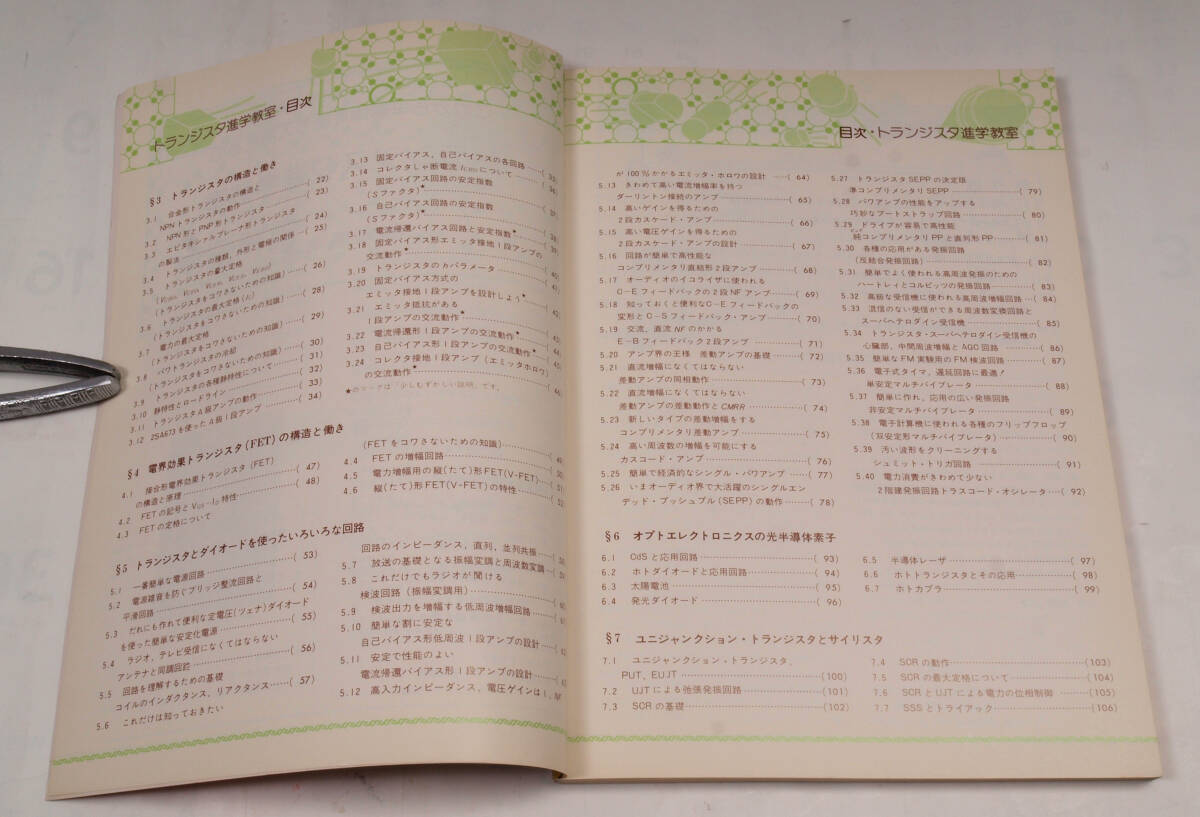 トランジスタ進学教室・目次
§3 トランジスタの構造と働き
3.1 合金形トランジスタの構造と
NPNトランジスタの動作……( 22)
3.2 NPN形とPNP形トランジスタ……( 23)
3.3 エピタキシャルプレーナ形トランジスタ
の製法……( 24)
3.4 トランジスタの種類，外形と電極の関係…( 25)
3.5 トランジスタの最大定格
(トランジスタをコワさないための知識)……( 26)
3.6 トランジスタの最大定格
(トランジスタをコワさないための知識)……( 28)
3.7 電力の最大定格
(トランジスタをコワさないための知識)……( 29)
3.8 パワトランジスタの冷却
(トランジスタをコワさないための知識)……( 30)
3.9 トランジスタの各種静特性について……( 31)
3.10 静特性とロードライン……( 32)
3.11 トランジスタA級アンプの動作……( 33)
3.12 2SA673を使ったA級1段アンプ……( 34)
3.13 固定バイアス，自己バイアスの各回路……
3.14 コレクタしゃ断電流について……
3.15 固定バイアス回路の安定指数
(Sファクタ)★……
3.16 自己バイアス回路の安定指数
(Sファクタ)★……
3.17 電流帰還バイアス回路と安定指数★……
3.18 固定バイアス形エミッタ接地1段アンプの
交流動作★……
3.19 トランジスタのhパラメータ……
3.20 固定バイアス方式の
エミッタ接地1段アンプを設計しよう★……
3.21 エミッタ抵抗がある
1段アンプの交流動作★……
3.22 電流帰還形1段アンプの交流動作★……
3.23 自己バイアス形1段アンプの交流動作★……
3.24 コレクタ接地1段アンプ(エミッタホロワ)
の交流動作★……
★のマークは「少しむずかしい説明」です。
§4 電界効果トランジスタ(FET)の構造と働き
4.1 接合形電界効果トランジスタ(FET)
の構造と原理……( 47)
4.2 FETの記号とVGS−ID特性……( 48)
4.3 FETの定格について
(FETをコワさないための知識)……
4.4 FETの増幅回路……
4.5 電力増幅用の縦(たて)形FET(V-FET)…
4.6 縦(たて)形FET(V-FET)の特性……
§5 トランジスタとダイオードを使ったいろいろな回路
5.1 一番簡単な電源回路……( 53)
5.2 電源雑音を防ぐブリッジ整流回路と
平滑回路……( 54)
5.3 だれにも作れて便利な定電圧(ツェナ)ダイオード
を使った簡単な安定化電源……( 55)
5.4 ラジオ，テレビ受信になくてはならない
アンテナと同調回路……( 56)
5.5 回路を理解するための基礎
コイルのインダクタンス，リアクタンス……( 57)
5.6 これだけは知っておきたい
回路のインピーダンス，直列，並列共振…
5.7 放送の基礎となる振幅変調と周波数変調…
5.8 これだけでもラジオが聞ける
検波回路(振幅変調用)……
5.9 検波出力を増幅する低周波増幅回路……
5.10 簡単な割に安定な
自己バイアス形低周波1段アンプの設計…
5.11 安定で性能のよい
電流帰還バイアス形1段アンプの設計……
5.12 高入力インピーダンス，電圧ゲインは1，NF
目次・トランジスタ進学教室
が100%かかるエミッタ・ホロワの設計……( 64)
5.13 きわめて高い電流増幅率を持つ
ダーリントン接続のアンプ……( 65)
5.14 高いゲインを得るための
2段カスケード・アンプ……( 66)
5.15 高い電圧ゲインを得るための
2段カスケード・アンプの設計……( 67)
5.16 回路が簡単で高性能な
コンプリメンタリ直結形2段アンプ……( 68)
5.17 オーディオのイコライザに使われる
C−Eフィードバックの2段NFアンプ……( 69)
5.18 知っておくと便利なC−Eフィードバックの
変形とC−Sフィードバック・アンプ……( 70)
5.19 交流，直流NFのかかる
E−Bフィードバック2段アンプ……( 71)
5.20 アンプ界の王様 差動アンプの基礎……( 72)
5.21 直流増幅になくてはならない
差動アンプの同相動作……( 73)
5.22 直流増幅になくてはならない
差動アンプの差動動作とCMRR……( 74)
5.23 新しいタイプの差動増幅をする
コンプリメンタリ差動アンプ……( 75)
5.24 高い周波数の増幅を可能にする
カスコード・アンプ……( 76)
5.25 簡単で経済的なシングル・パワアンプ……( 77)
5.26 いまオーディオ界で大活躍のシングルエン
デッド・プッシュプル(SEPP)の動作……( 78)
5.27 トランジスタSEPPの決定版
準コンプリメンタリSEPP……( 79)
5.28 パワアンプの性能をアップする
巧妙なブートストラップ回路……( 80)
5.29 ドライブが容易で高性能
純コンプリメンタリPPと直列形PP……( 81)
5.30 各種の応用がある発振回路
(反結合発振回路)……( 82)
5.31 簡単でよく使われる高周波発振のための
ハートレィとコルピッツの発振回路……( 83)
5.32 高級な受信機に使われる高周波増幅回路…( 84)
5.33 混信のない受信ができる周波数変換回路と
スーパヘテロダイン受信機……( 85)
5.34 トランジスタ・スーパヘテロダイン受信機の
心臓部，中間周波増幅とAGC回路……( 86)
5.35 簡単なFM実験用のFM検波回路……( 87)
5.36 電子式タイマ，遅延回路に最適！
単安定マルチバイブレータ……( 88)
5.37 簡単に作れ，応用の広い発振回路
非安定マルチバイブレータ……( 89)
5.38 電子計算機に使われる各種のフリップフロップ
(双安定形マルチバイブレータ)……( 90)
5.39 汚い波形をクリーニングする
シュミット・トリガ回路……( 91)
5.40 電力消費がきわめて少ない
2階建発振回路トラスコード・オシレータ…( 92)
§6 オプトエレクトロニクスの光半導体素子
6.1 CdSと応用回路……( 93)
6.2 ホトダイオードと応用回路……( 94)
6.3 太陽電池……( 95)
6.4 発光ダイオード……( 96)
6.5 半導体レーザ……( 97)
6.6 ホトトランジスタとその応用……( 98)
6.7 ホトカプラ……( 99)
§7 ユニジャンクション・トランジスタとサイリスタ
7.1 ユニジャンクション・トランジスタ，
PUT，EUJT……(100)
7.2 UJTによる弛張発振回路……(101)
7.3 SCRの基礎……(102)
7.4 SCRの動作……(103)
7.5 SCRの最大定格について……(104)
7.6 SCRとUJTによる電力の位相制御……(105)
7.7 SSSとトライアック……(106)